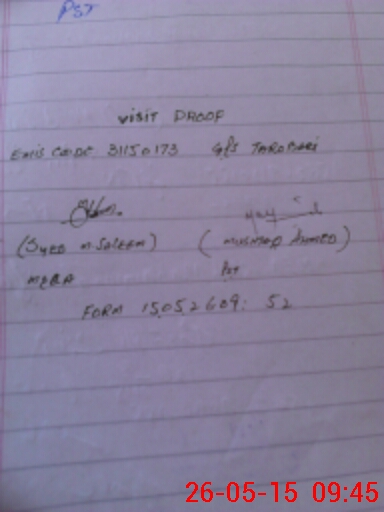 PST
VISIT PROOF
EMIS CODE 31150173 G/S TAROBARI
(SYED M. SALEEM) (MUSHTAQ AHMED)
MEEA PST
FORM 15052609:52
26-05-15 09:45